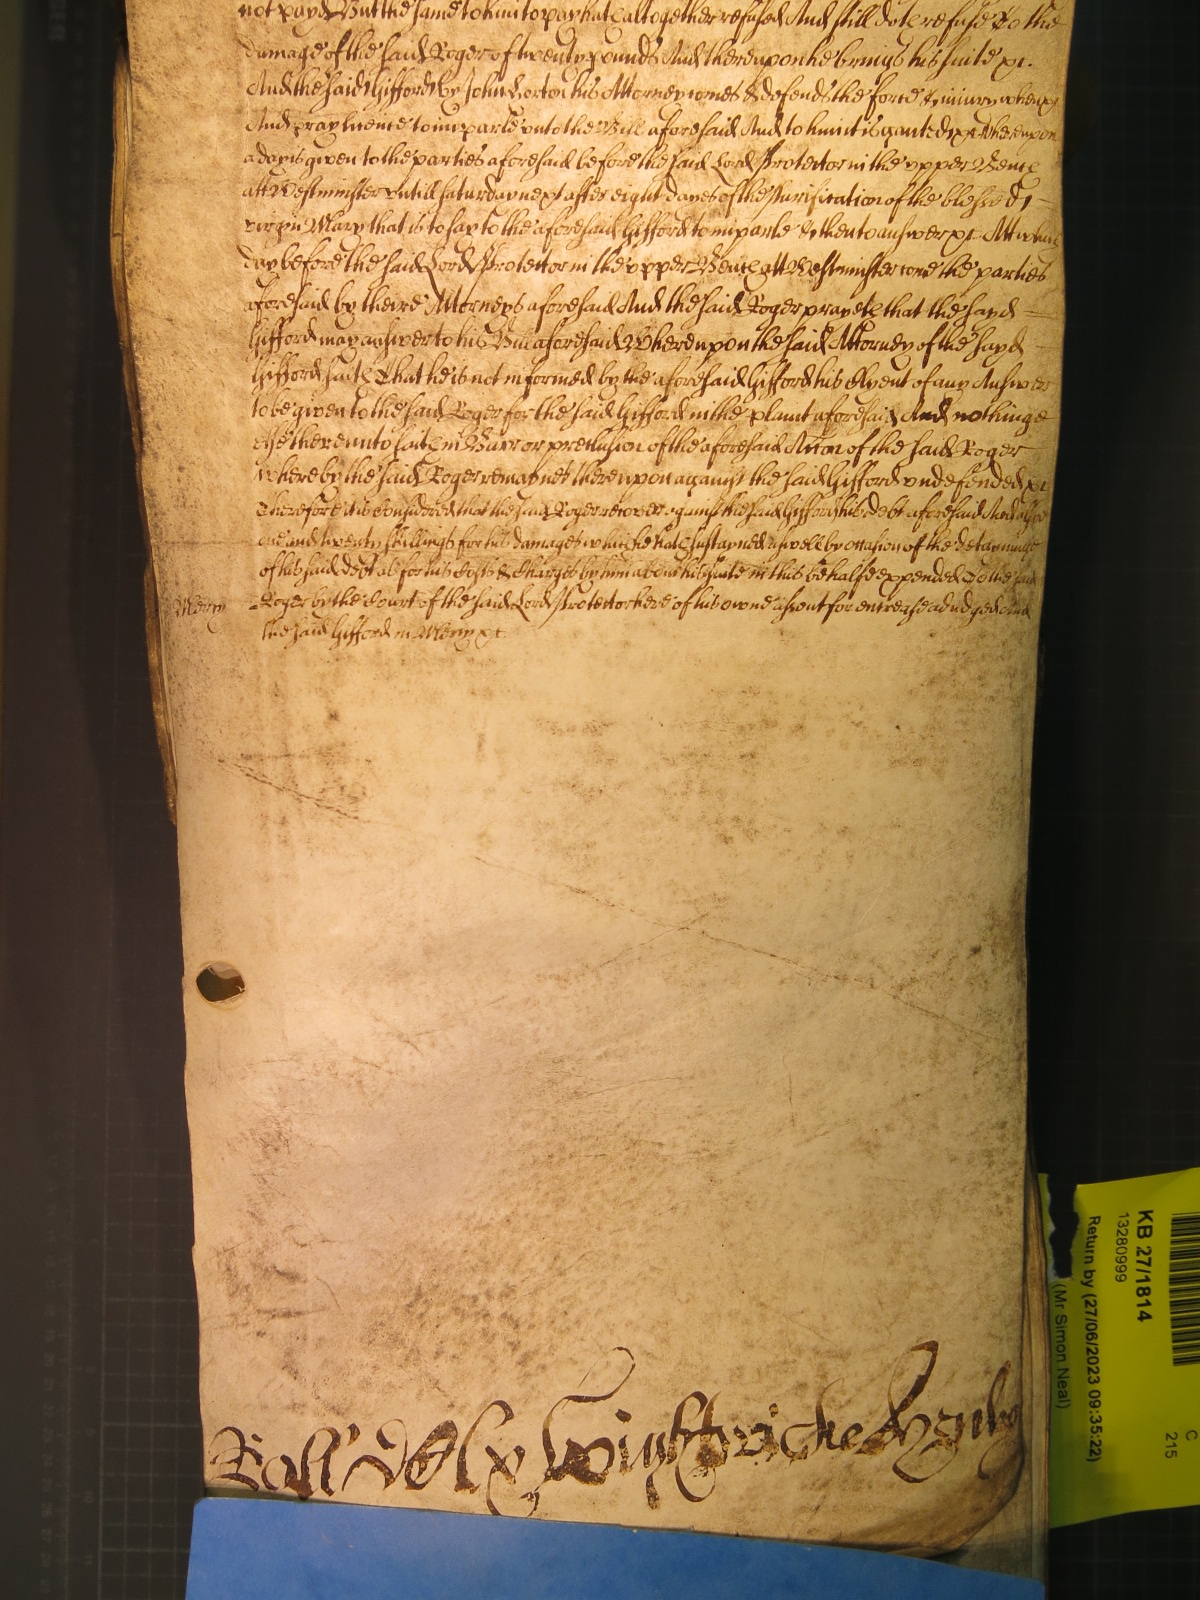 not payd But the same to him to pay hath altogether refused And still doth refuse To the
damage of the said Roger of twenty pounds And thereupon he brings his suite &c.
And the said Gifford by John Horton his Attorney comes & defends the force & iniury when &c
And pray licence to imparle unto the Bill aforesaid And to him it is granted &c And thereupon
a day is given to the parties aforesaid before the said Lord Protector in the upper Bench
att Westminster untill Saturday next after eight dayes of the Purification of the blessed
virgin Mary that is to say to the aforesaid Gifford to imparle & then to answer &c Att which
day before the said Lord Protector in the upper Bench att Westminster come the parties
aforesaid by theire Attorneys aforesaid And the said Roger prayeth that the sayd
Gifford may answer to his Bill aforesaid Whereupon the said Attorney of the sayd
Gifford saith That he is not informed by the aforesaid Gifford his Clyent of any Answer
to be given to the said Roger for the said Gifford in the plaint aforesaid And nothinge
else thereunto saith in Barr or preclusion of the aforesaid Accon of the said Roger
whereby the said Roger remaynes thereupon against the said Gifford undefended &c
Therefore it is Considered that the said Roger recover against the said Gifford his debt aforesaid And alsoe
one and twenty shillings for his damages which he hath sustayned aswell by occasion of the detayninge
of his said debt as for his Costs & Charges by him about his suite in this behalfe expended To the said
Mercy Roger by the Court of the said Lord Protector here of his owne assent for encrease adiudged And
the said Gifford in Mercy &c
Roll
KB 27/1814
13280999
Return by (27/06/2023 09:35:22)
(Mr Simon Neal)
C
215